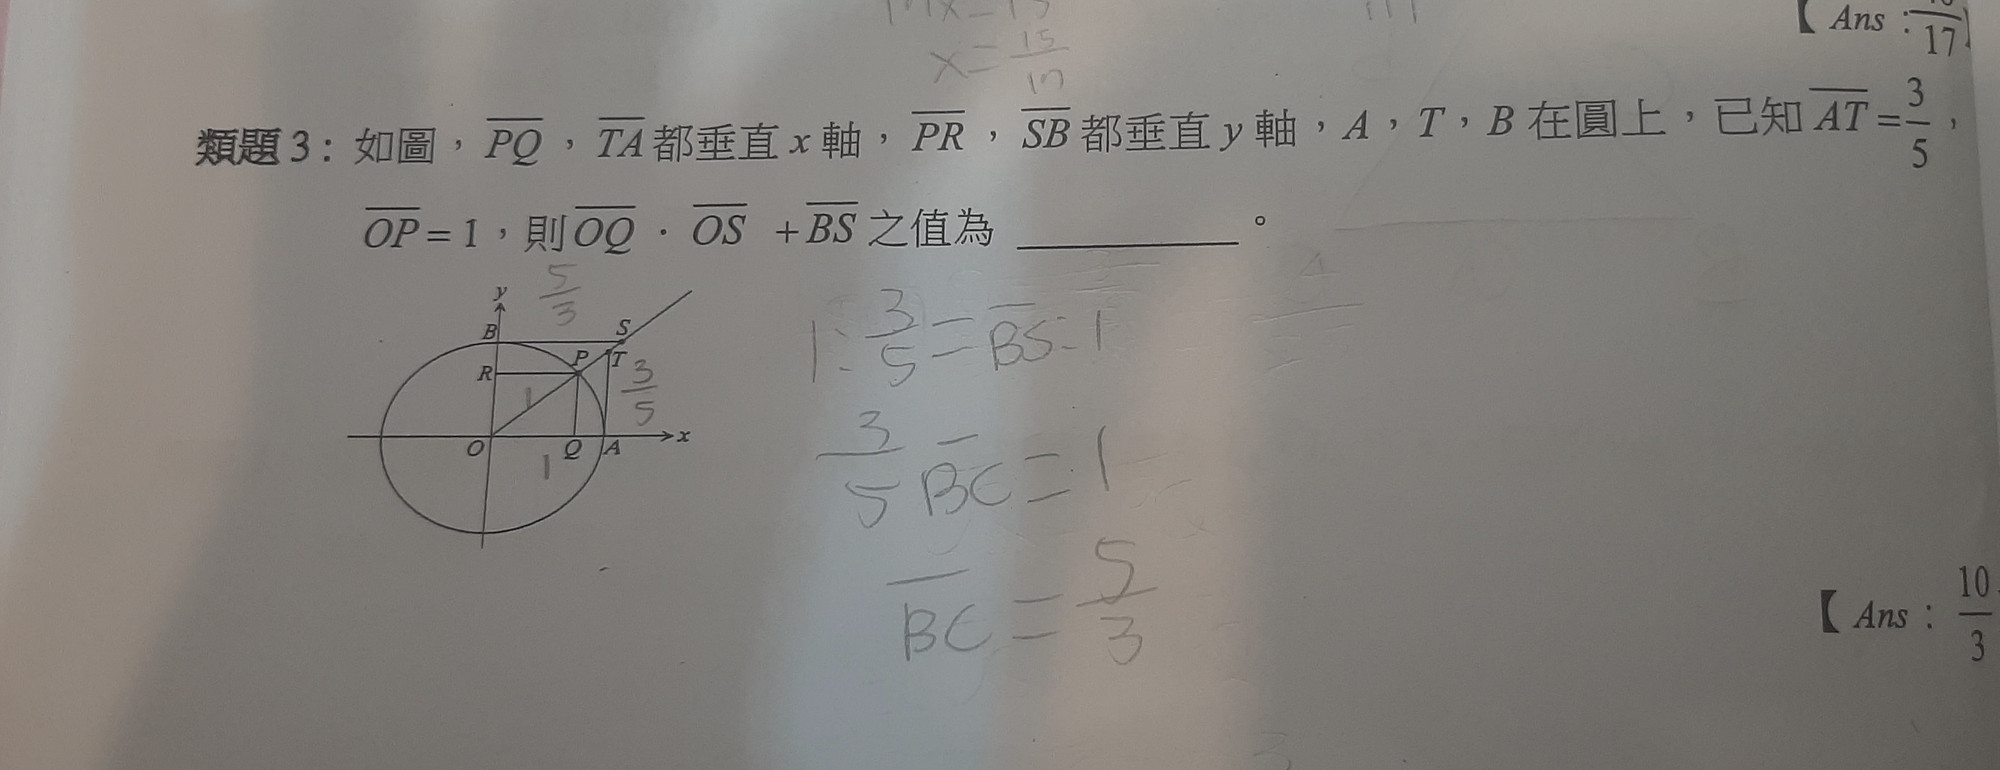 x=15/17
【Ans:  /17】
類題3: 如圖,PQ,TA都垂直x軸,PR,SB都垂直y軸,A,T,B在圓上,已知AT=3/5,
OP=1,則OQ·OS +BS之值為 ______。
5/3
y
B S
P T
R 3/5
1
O Q A x
1
1:3/5=BS:1
3/5 BC=1
BC=5/3
【Ans: 10/3